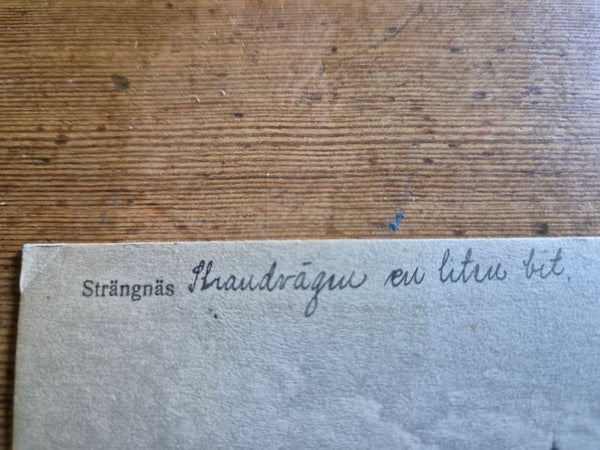 Strängnäs Strandvägen en liten bit.